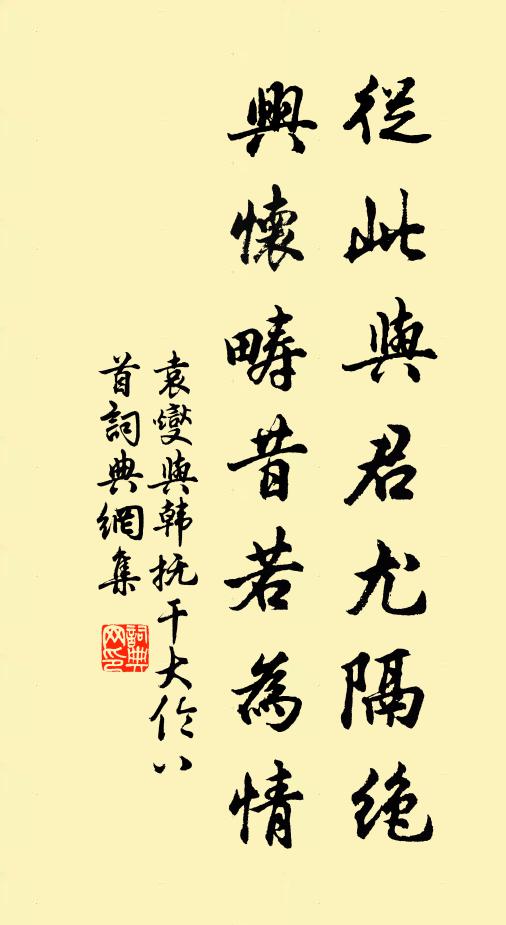 從此與君尤隔絶
興懷疇昔若為情
袁燮與韓抚干大伦八
首詞典網集
詞典网印